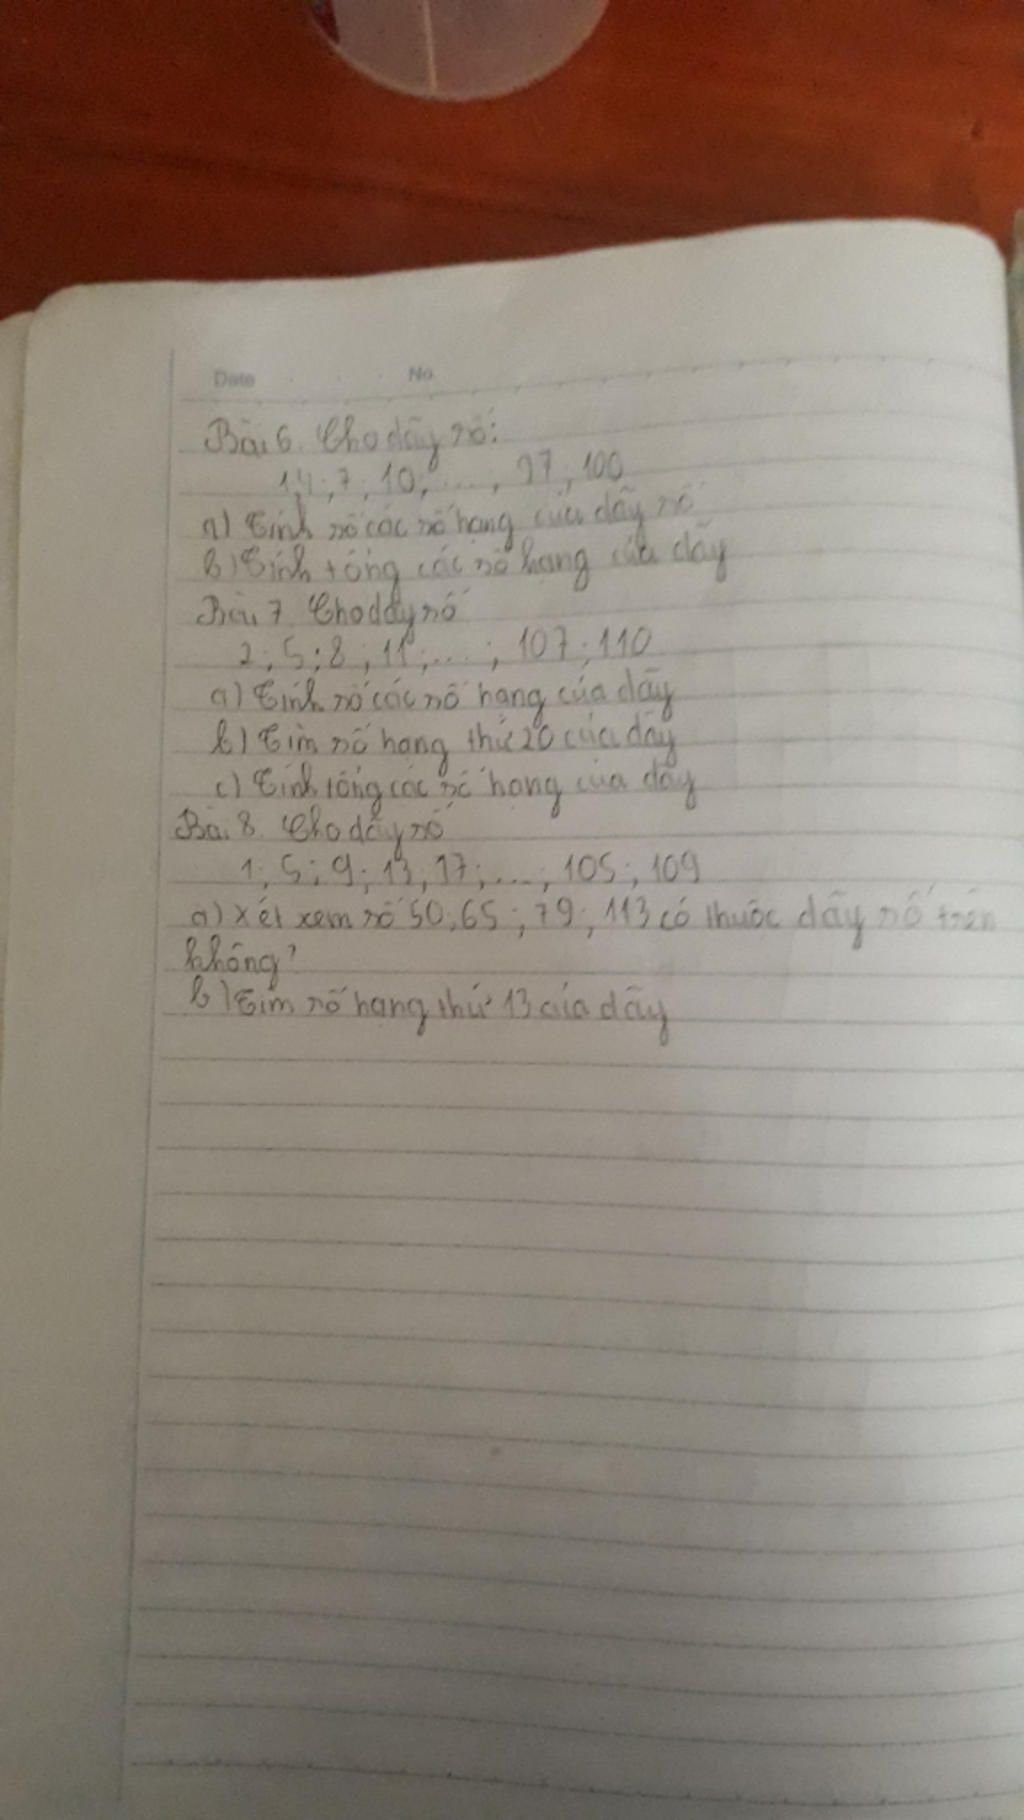 Date No.
Bài 6. Cho dãy số:
1,4; 7; 10; ...; 97; 100
a) Tính số các số hạng của dãy số
b) Tính tổng các số hạng của dãy
Bài 7 Cho dãy số
2; 5; 8; 11; ...; 107; 110
a) Tính số các số hạng của dãy
b) Tìm số hạng thứ 20 của dãy
c) Tính tổng các số hạng của dãy
Bài 8. Cho dãy số
1; 5; 9; 13, 17; ...; 105; 109
a) Xét xem số 50, 65; 79; 113 có thuộc dãy số trên
không?
b) Tìm số hạng thứ 13 của dãy